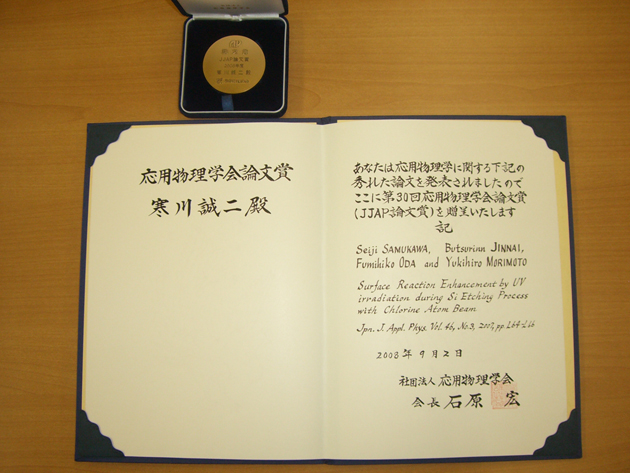 応用物理学会論文賞
寒川誠二殿
あなたは応用物理学に関する下記の
秀れた論文を発表されましたので
ここに第30回応用物理学会論文賞
(JJAP論文賞)を贈呈いたします
記
Seiji SAMUKAWA, Butsurin JINNAI,
Fumihiko ODA and Yukihiro MORIMOTO
Surface Reaction Enhancement by UV
irradiation during Si Etching Process
with Chlorine Atom Beam
Jpn. J. Appl. Phys. Vol. 46, No.3, 2007, pp. L64-L66
2008年9月2日
社団法人 応用物理学会
会長 石原 宏